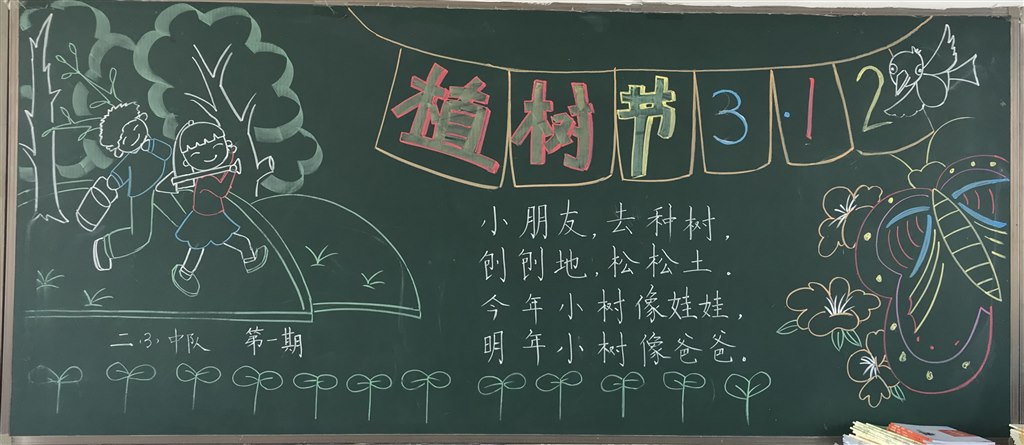 植树节3·12
小朋友,去种树,
刨刨地,松松土.
今年小树像娃娃,
明年小树像爸爸。
二·(3)·中队 第一期